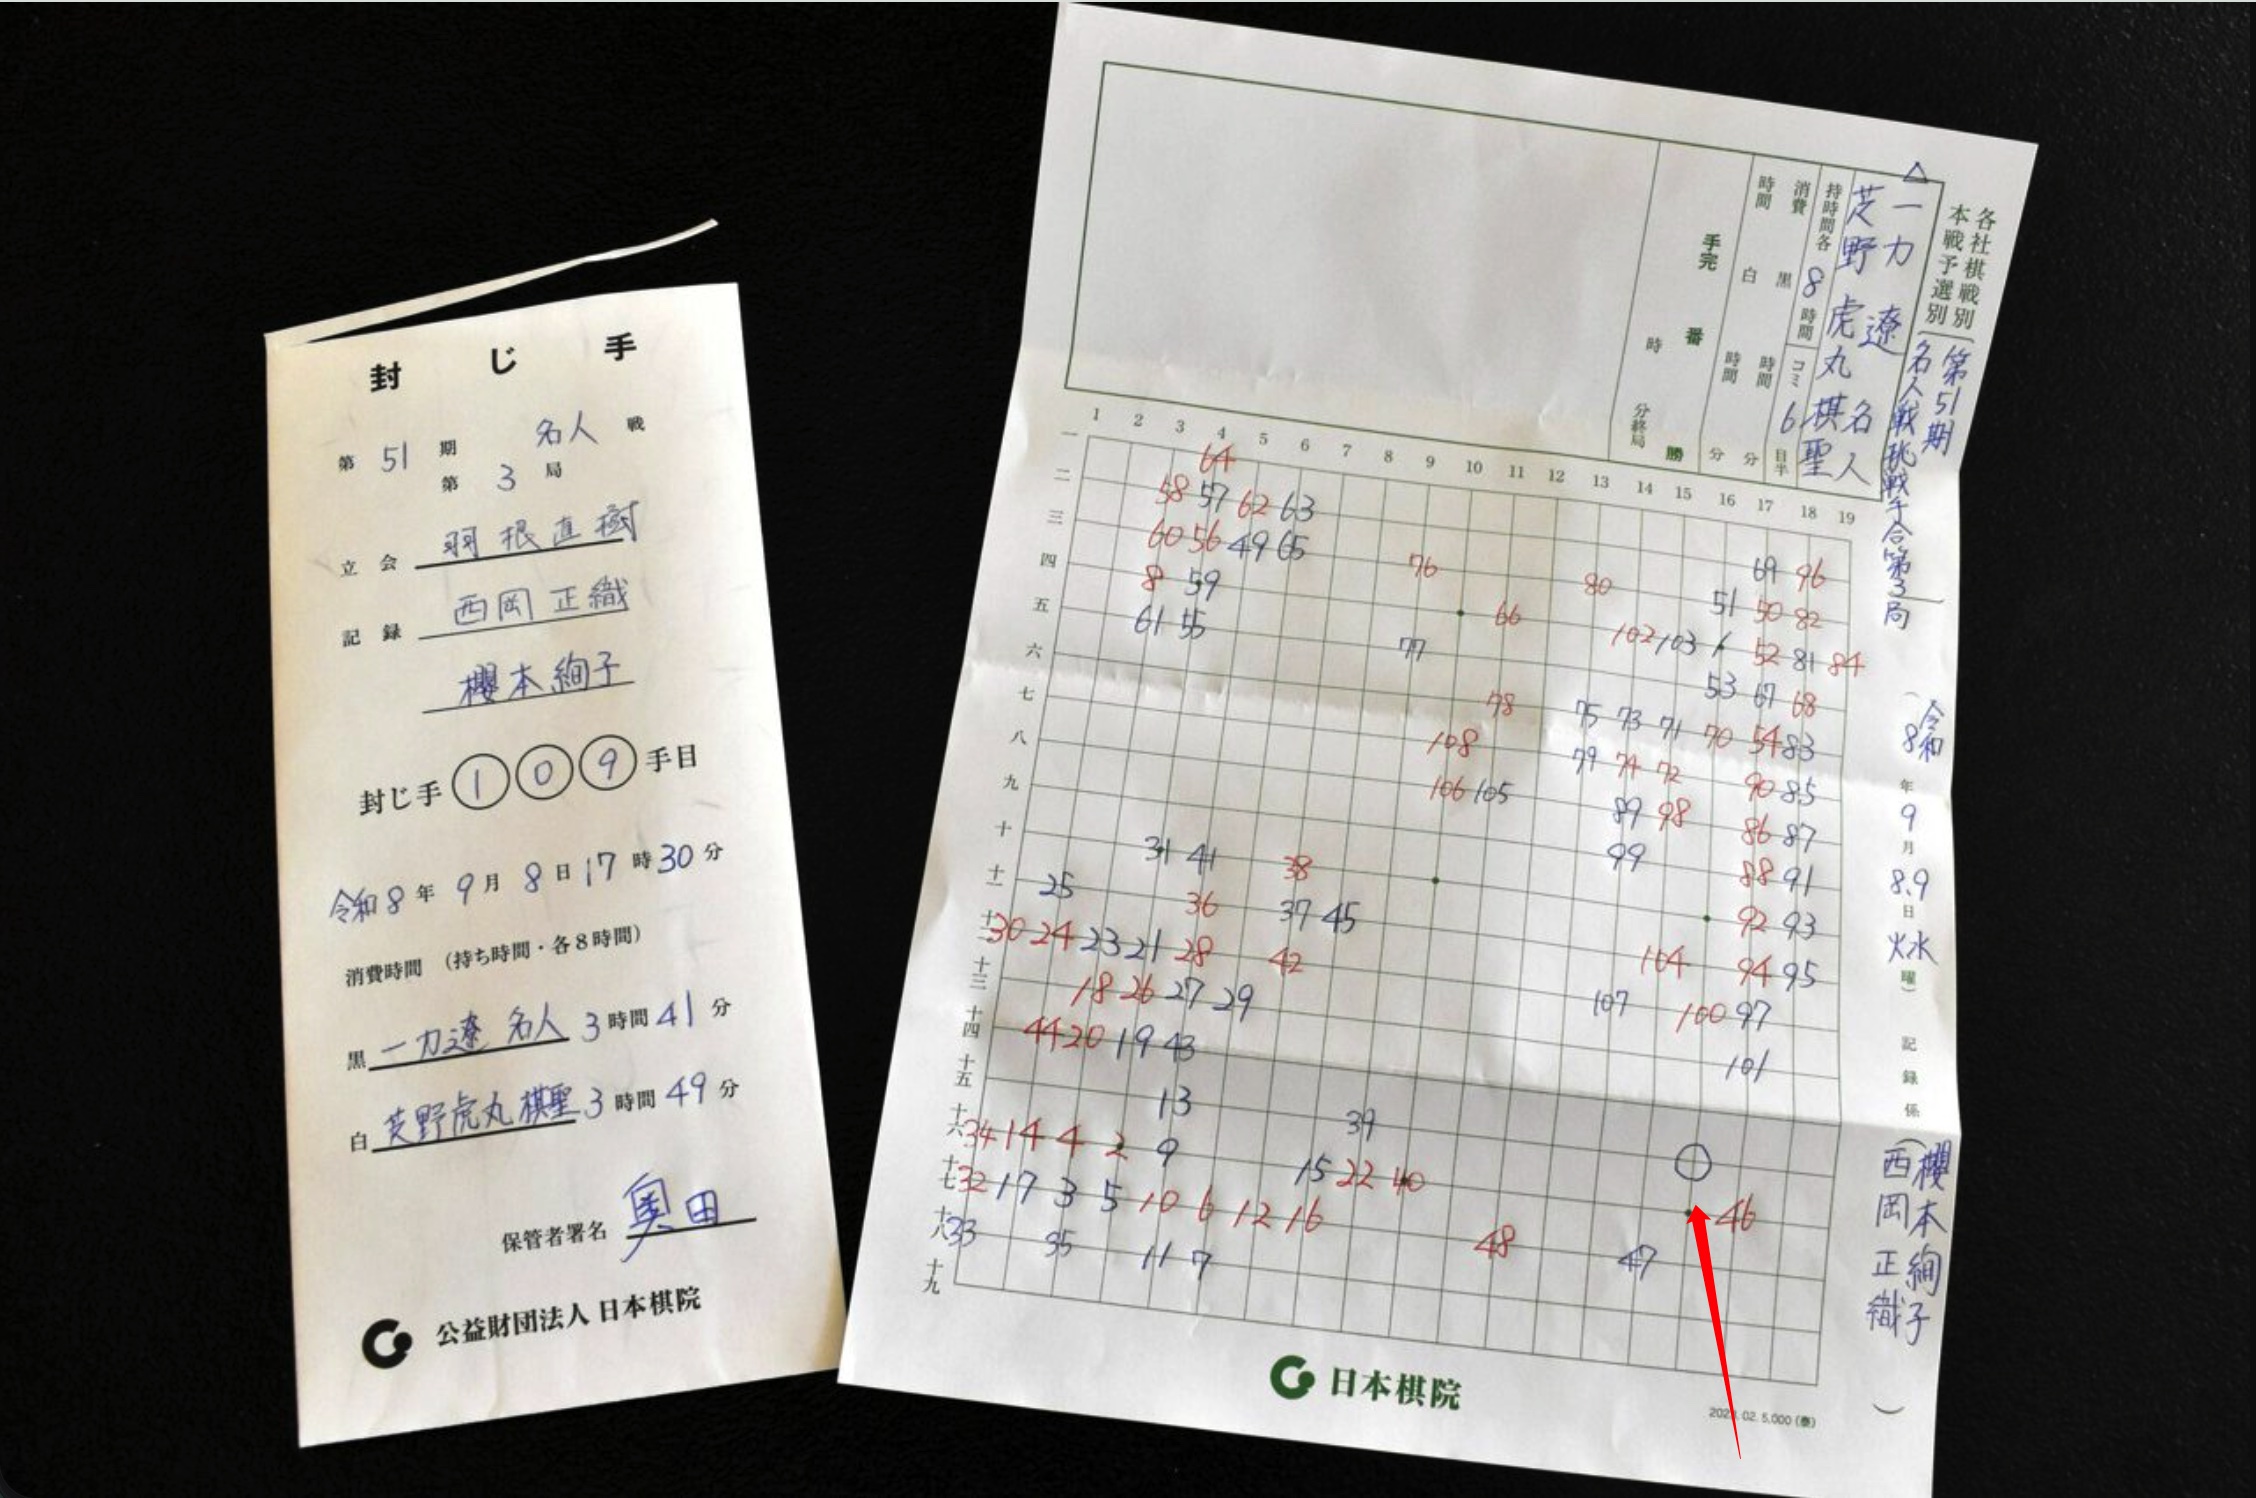 封じ手
第 51 期 名人 戦
第 3 局
立会 羽根直樹
記録 西岡正織
櫻本絢子
封じ手 109 手目
令和8年 9月 8日 17時30分
消費時間 (持ち時間・各8時間)
黒 一力遼 名人 3時間41分
白 芝野虎丸 棋聖 3時間49分
保管者署名 奥田
公益財団法人 日本棋院
各社棋戦別
本戦予選別
第51期
名人戦挑戦手合第3局
△一力 遼 名人
芝野 虎丸 棋聖
持時間各 8 時間 コミ 6 目半
消費時間 黒 時間 分
白 時間 分
手完 番 勝
時 分終局
(令和8年9月8、9日火水曜)
記録係(櫻本絢子
西岡正織)
1 2 3 4 5 6 7 8 9 10 11 12 13 14 15 16 17 18 19
一 64
二 58 57 62 63
三 60 56 49 65 76 80 69 96
四 8 59 66 51 50 82
五 61 55 77 102 103 1 52 81 84
六 53 67 68
七 78 75 73 71 70 54 83
八 108 79 74 72 90 85
九 106 105 89 98 86 87
十 31 41 38 99 88 91
十一 25 36 37 45 92 93
十二 30 24 23 21 28 42 104 94 95
十三 18 26 27 29 107 100 97
十四 44 20 19 43 101
十五 13 39
十六 34 14 4 2 9 15 22 40
十七 32 17 3 5 10 6 12 16 46
十八 33 35 11 7 48 47
十九
日本棋院
02. 5,000